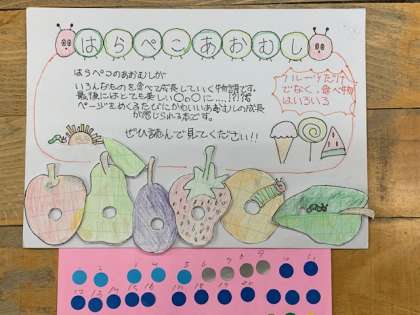 はらぺこあおむし
はらペコのあおむしが
いろんなものを食べて成長していく物語です。
最後にはとても美しい〇〇〇に…!?!?
ページをめくるたびにかわいいあおむしの成長
が感じられる本です。
ぜひ読んで見てください!!
フルーツだけ
でなく、食べ物
はいろいろ
1 2 3 4 5 6 7 8 9 10 11
12 13 14 15 16 17 18 19 20